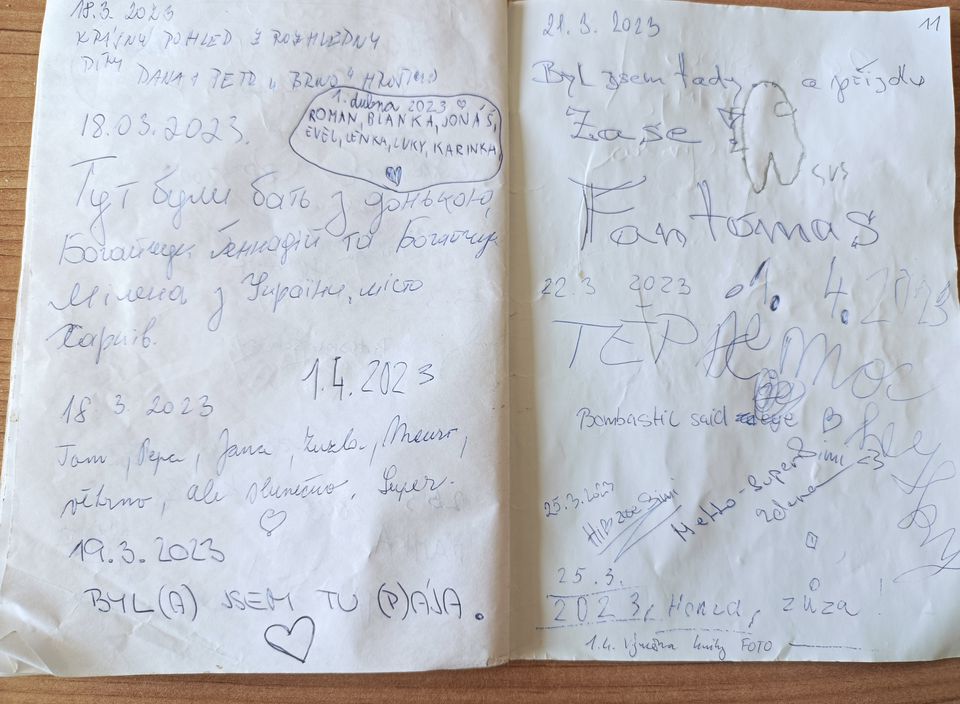 18.3. 2023
KRÁSNÝ POHLED Z ROZHLEDNY
DÍKY
DANA + PETR "BRNO"
1. dubna 2023 ♡
ROMAN, BLANKA, JONÁŠ,
EVEL, LENKA, LUKY, KARINKA
18.03.2023.
Тут були бать з донькою,
Богайчук Геннадій та Богайчук
Мілена з України, місто
Харків.
1.4.2023
18 3. 2023
Tom, Pepa, Jana,
větrno, ale slunečno, super.
19.3. 2023
BYL(A) JSEM TU (P)ÁJA.
11
21.3. 2023
Byl jsem tady a přijdu
Zase
SVS
Fantomas
22.3 2023
1. 4. 2023
Bombastic said
25.3.2023
Simi
Simi <3
25.3.
2023, Honza, Zůza!
1.4. Výměna knihy FOTO